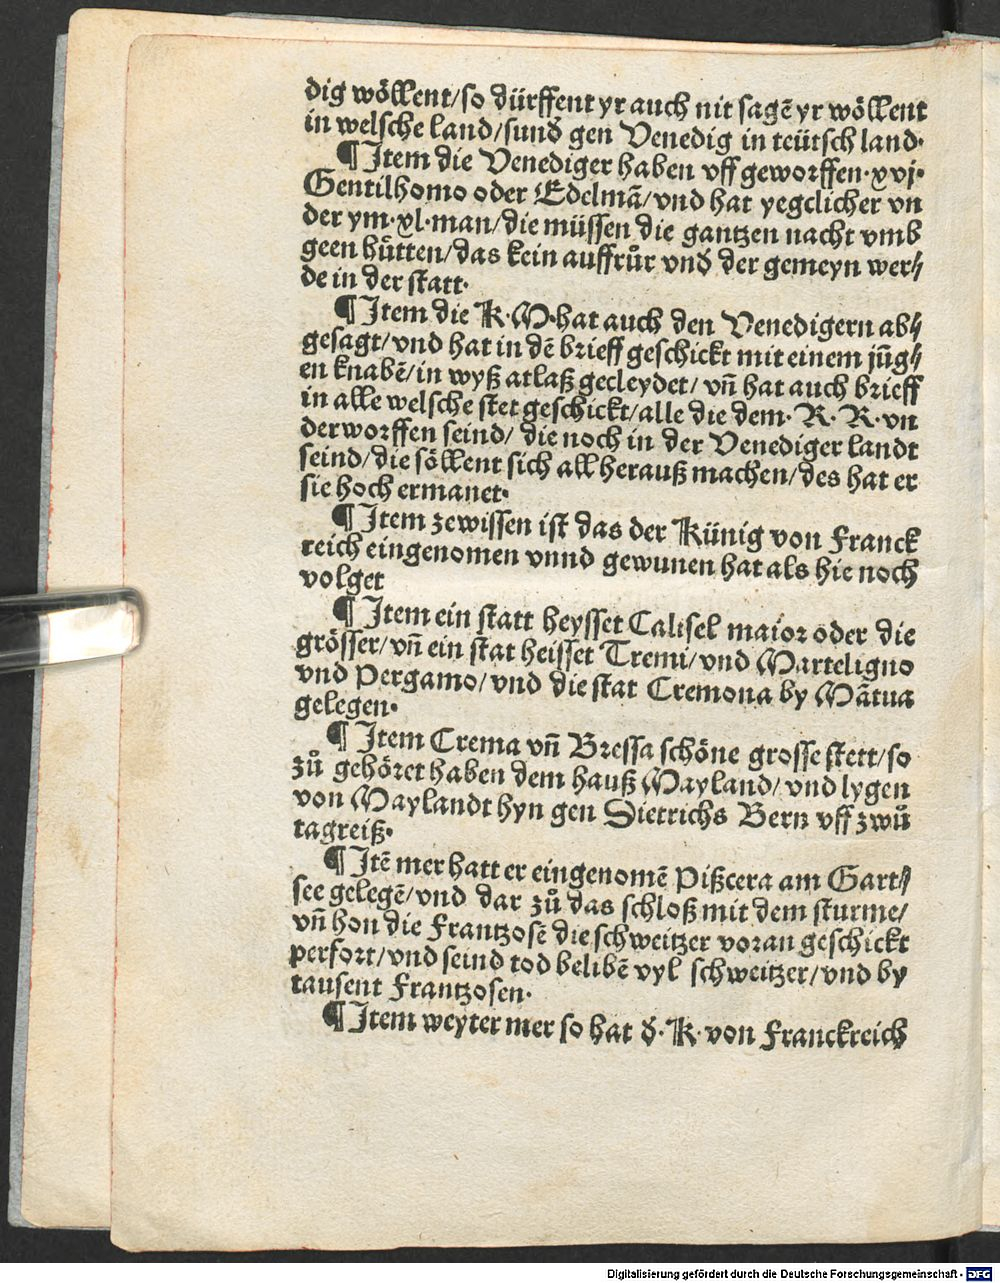 dig wöllent/so dürffent yr auch nit sagē yr wöllent
in welsche land/sunđ gen Venedig in teütsch land·
¶ Item die Venediger haben vff geworffen·xvj·
Gentilhomo oder Edelmā/vnd hat yegclicher vn
der ym·xl·man/die müssen die gantzen nacht vmb
geen hütten/das kein auffrůr vnđ der gemeyn wer⸗
de in der statt·
¶ Item die K·M·hat auch den Venedigern ab⸗
gesagt/vnd hat in dē brieff geschickt mit einem jūg⸗
en knabē/in wyß atlaß gecleydet/vn̄ hat auch brieff
in alle welsche stet geschickt/alle die dem·R·R·vn
derworffen seind/die noch in der Venediger landt
seind/die söllent sich all herauß machen/des hat er
sie hoch ermanet·
¶ Item zewissen ist das der Künig von Franck
reich eingenomen vnnd gewunen hat als hie noch
volget
¶ Item ein statt heysset Calisel maior oder die
grösser/vn̄ ein stat heisset Tremi/vnd Marteligno
vnd Pergamo/vnd die stat Cremona by Mātua
gelegen·
¶ Item Crema vn̄ Bressa schöne grosse stett/so
zů gehöret haben dem hauß Mayland/vnd lygen
von Maylandt hyn gen Dietrichs Bern vff zwů
tagreiß·
¶ Itē mer hatt er eingenomē Pißcera am Gart⸗
see gelegē/vnd dar zů das schloß mit dem sturme/
vn̄ hon die Frantzosē die schweitzer voran geschickt
perfort/vnd seind tod belibē vyl schweitzer/vnd by
tausent Frantzosen·
¶ Item weyter mer so hat đ·K·von Franckreich
Digitalisierung gefördert durch die Deutsche Forschungsgemeinschaft - DFG